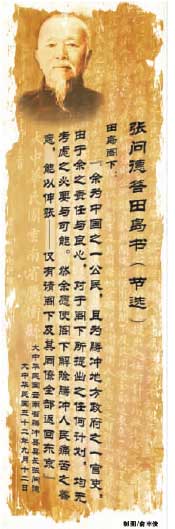 张问德答田岛书（节选）
田岛阁下：
“余为中国之一公民，且为腾冲地方政府之一官吏，
由于余之责任与良心，对于阁下所提出之任何计划，均无
考虑之必要与可能。然余愿使阁下解除腾冲人民痛苦之善
意，能以伸张——仅有请阁下及其同僚全部返回东京。”
大中华民国云南省腾冲县县长张问德
大中华民国三十二年九月十二日
制图/俞丰俊